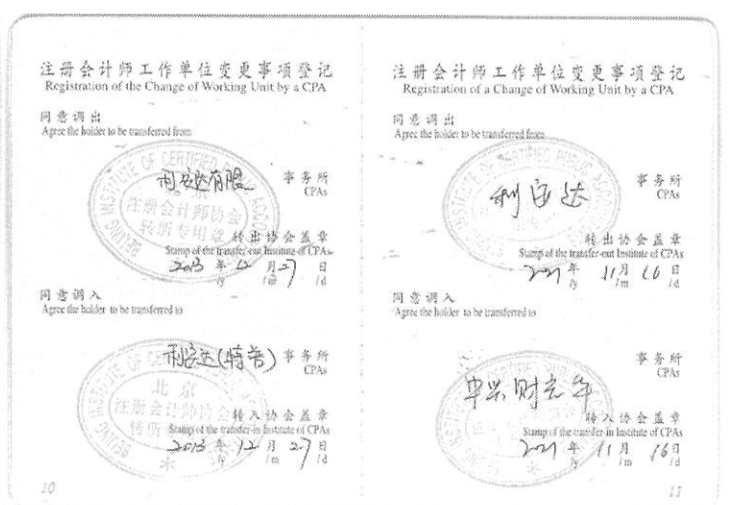 注册会计师工作单位变更事项登记
Registration of the Change of Working Unit by a CPA
同意调出
Agree the holder to be transferred from
利安达有限 事务所
CPAs
BEIJING INSTITUTE OF CERTIFIED
注册会计师协会
转所专用章
转出协会盖章
Stamp of the transfer-out Institute of CPAs
2013 年 12 月 27 日
/y /m /d
同意调入
Agree the holder to be transferred to
利安达(特普) 事务所
CPAs
北京
注册会计师协会
转入协会盖章
Stamp of the transfer-in Institute of CPAs
2013 年 12 月 27 日
/y /m /d
10
注册会计师工作单位变更事项登记
Registration of a Change of Working Unit by a CPA
同意调出
Agree the holder to be transferred from
利安达 事务所
CPAs
转出协会盖章
Stamp of the transfer-out Institute of CPAs
2021 年 11 月 16 日
/y /m /d
同意调入
Agree the holder to be transferred to
中兴财光华 事务所
CPAs
转入协会盖章
Stamp of the transfer-in Institute of CPAs
2021 年 11 月 16 日
/y /m /d
11